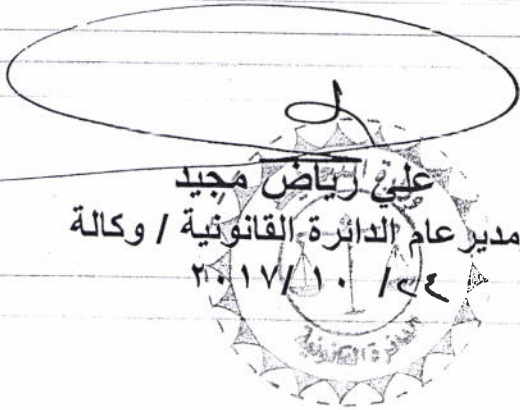 علي رياض مجيد
مدير عام الدائرة القانونية / وكالة
٢٤/ ١٠ /٢٠١٧
الدائرة القانونية